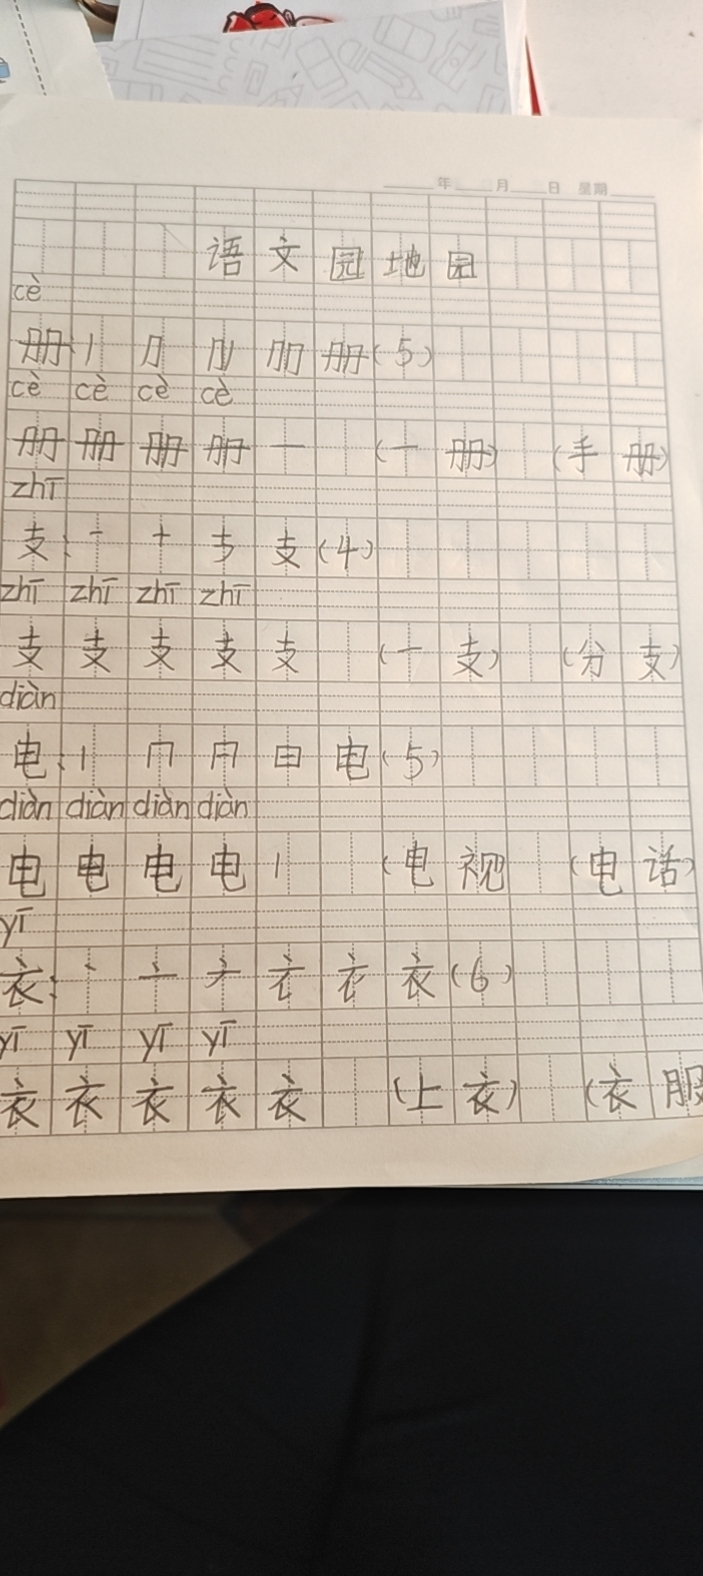 年 月 日 星期
语文园地园
cè
册:丨 冂 册(5)
cè cè cè cè
册册册册一 (一册) (手册)
zhī
支:一 十 支(4)
zhī zhī zhī zhī
支支支支支 (一支) (分支)
diàn
电:丨 冂 日 电(5)
diàn diàn diàn diàn
电电电电丨 (电视 (电话)
yī
衣:丶 亠 衣(6)
yī yī yī yī
衣衣衣衣衣 (上衣) (衣服